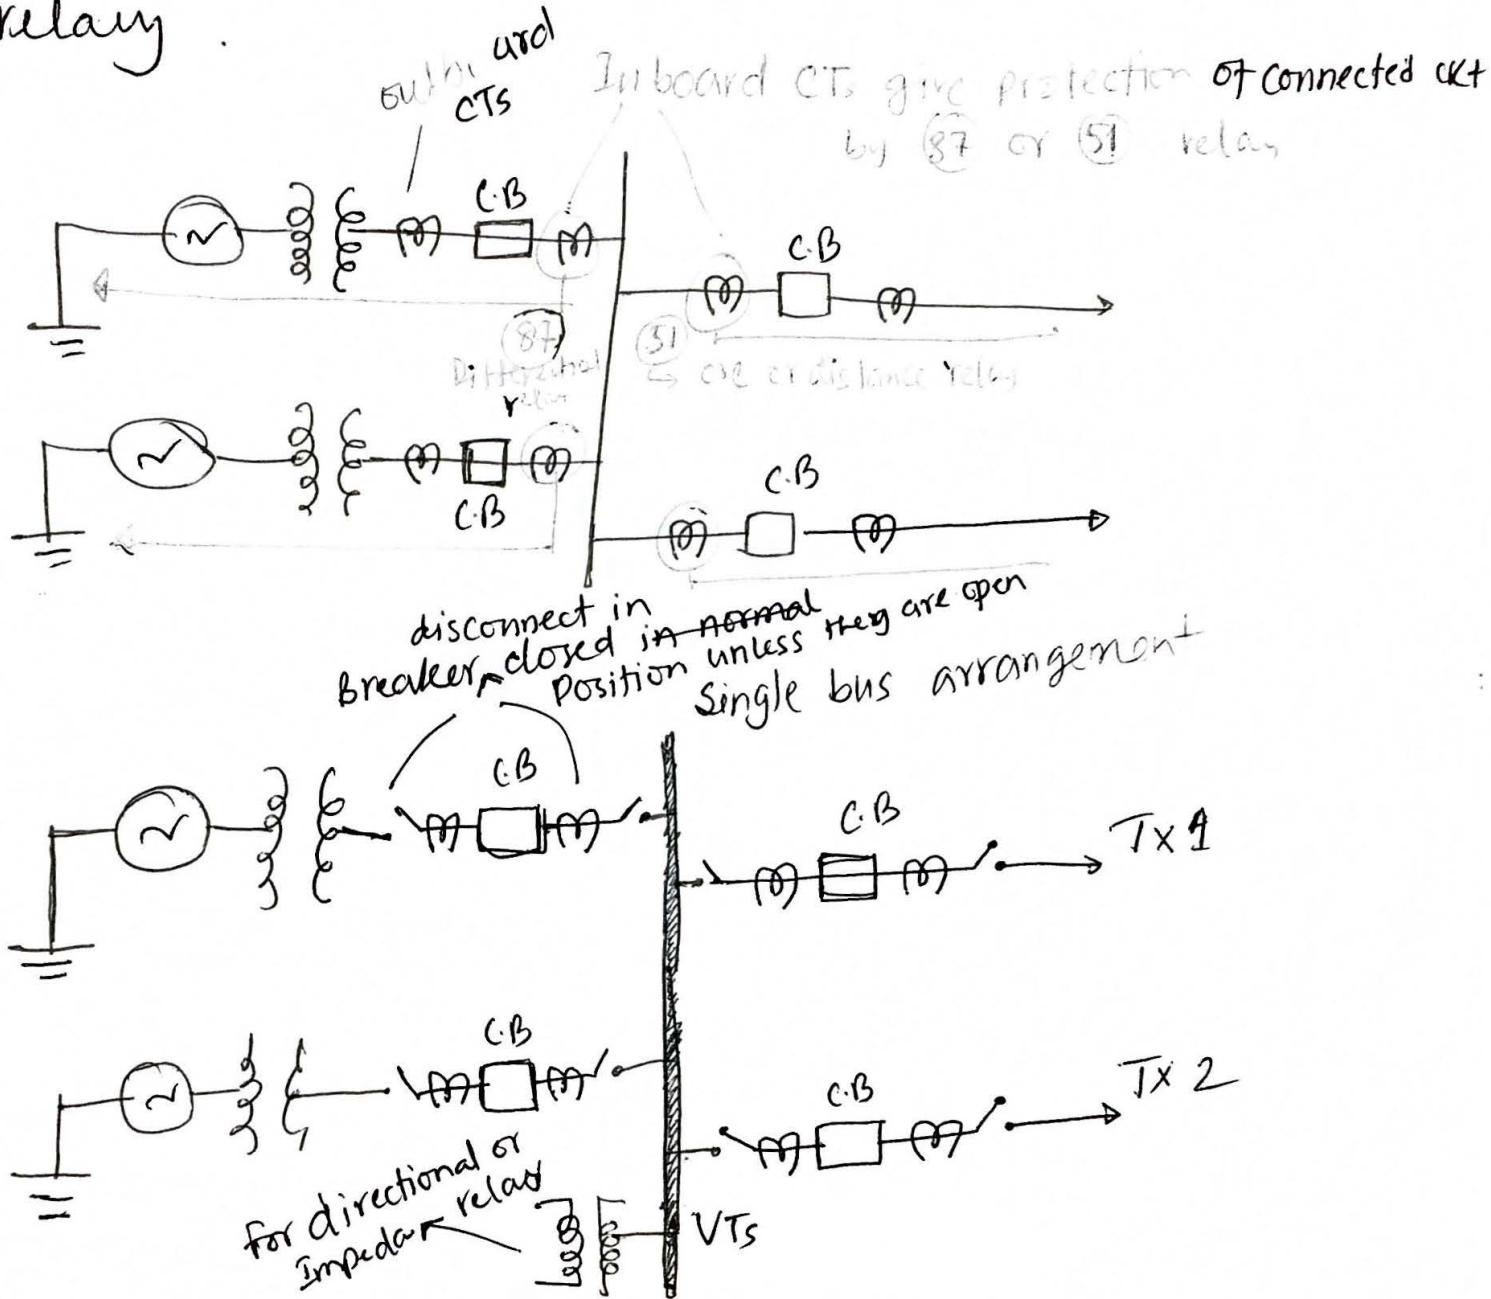 relay
outboard
CTs
Inboard CTs give protection of connected ckt
by 87 or 51 relay
C.B
C.B
87
Differential
relay
51
↳ o/c or distance relay
C.B
C.B
disconnect in
Breaker closed in normal
position unless they are open
Single bus arrangement
C.B
C.B
Tx 1
C.B
C.B
Tx 2
For directional or
Impedance relay
VTs